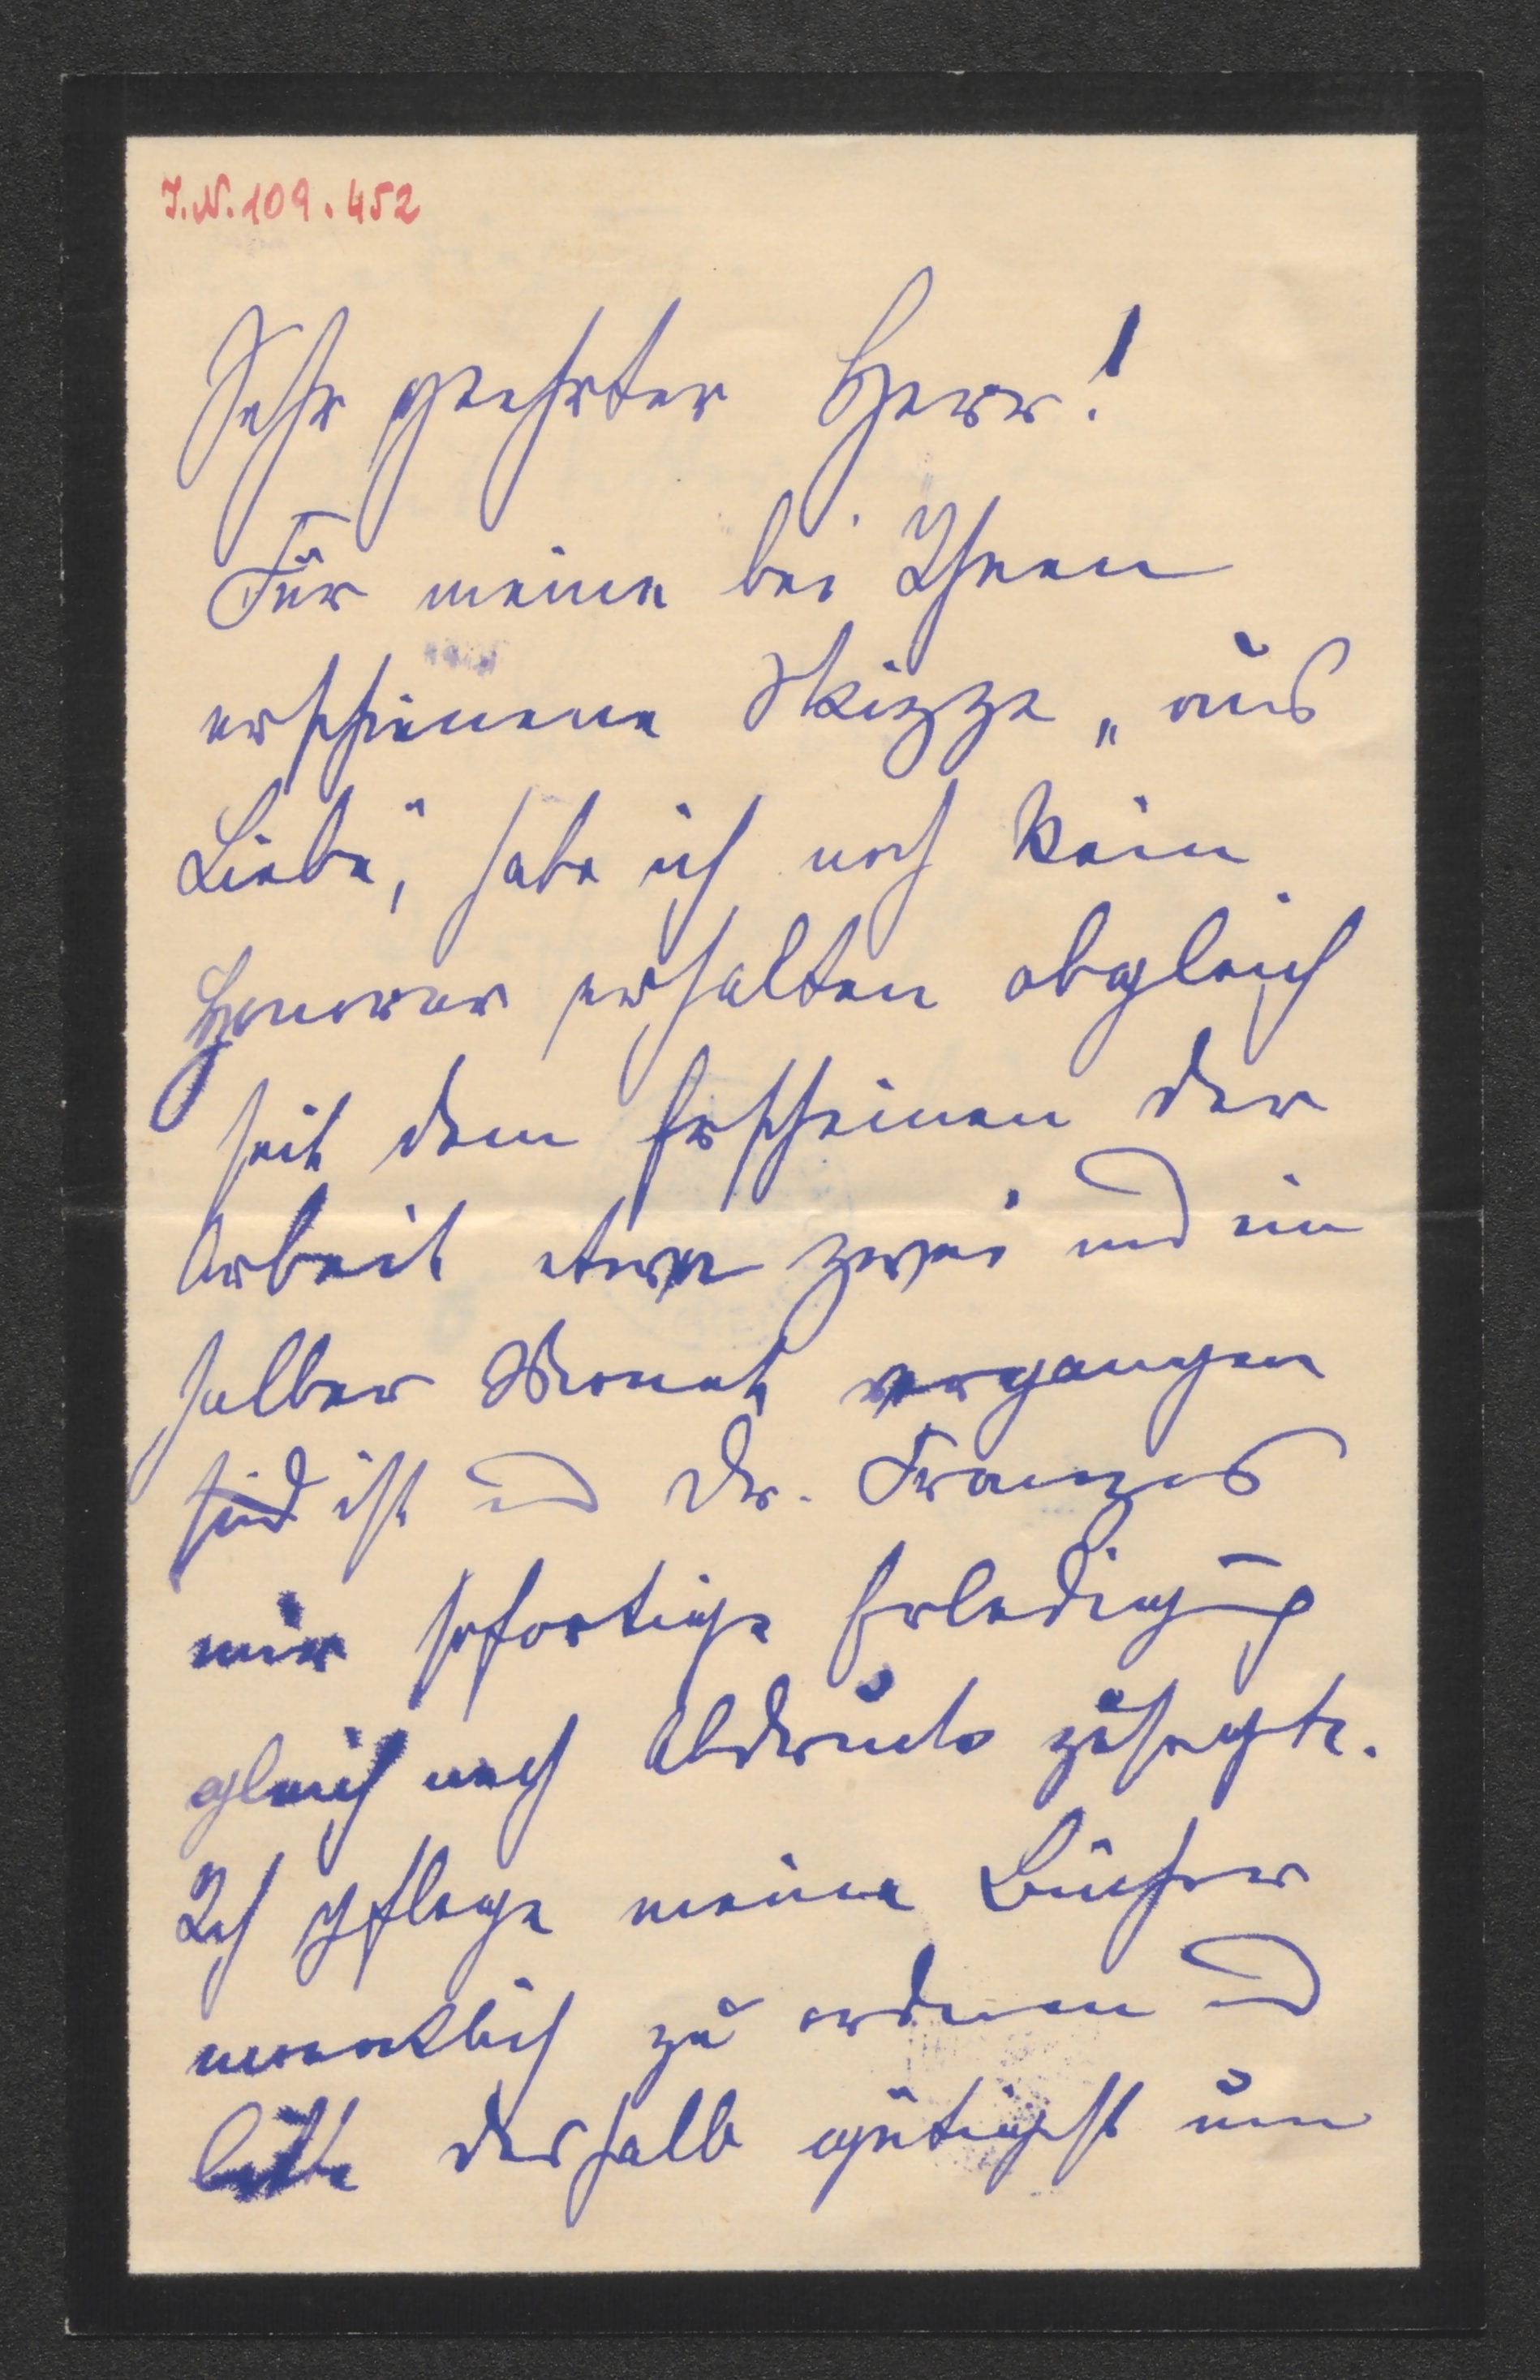 J.N. 109.452
Sehr geehrter Herr!
Für meine bei Ihnen
erschienene Skizze „aus
Liebe“, habe ich noch kein
Honorar erhalten obgleich
seit dem Erscheinen der
Arbeit etwa zwei und ein
halber Monat vergangen
sind ist und Dr. Franzos
mir sofortige Erledigung
gleich nach Abdruck zusagte.
Ich pflege meine Bücher
monatlich zu ordnen und
bitte deshalb gütigst um